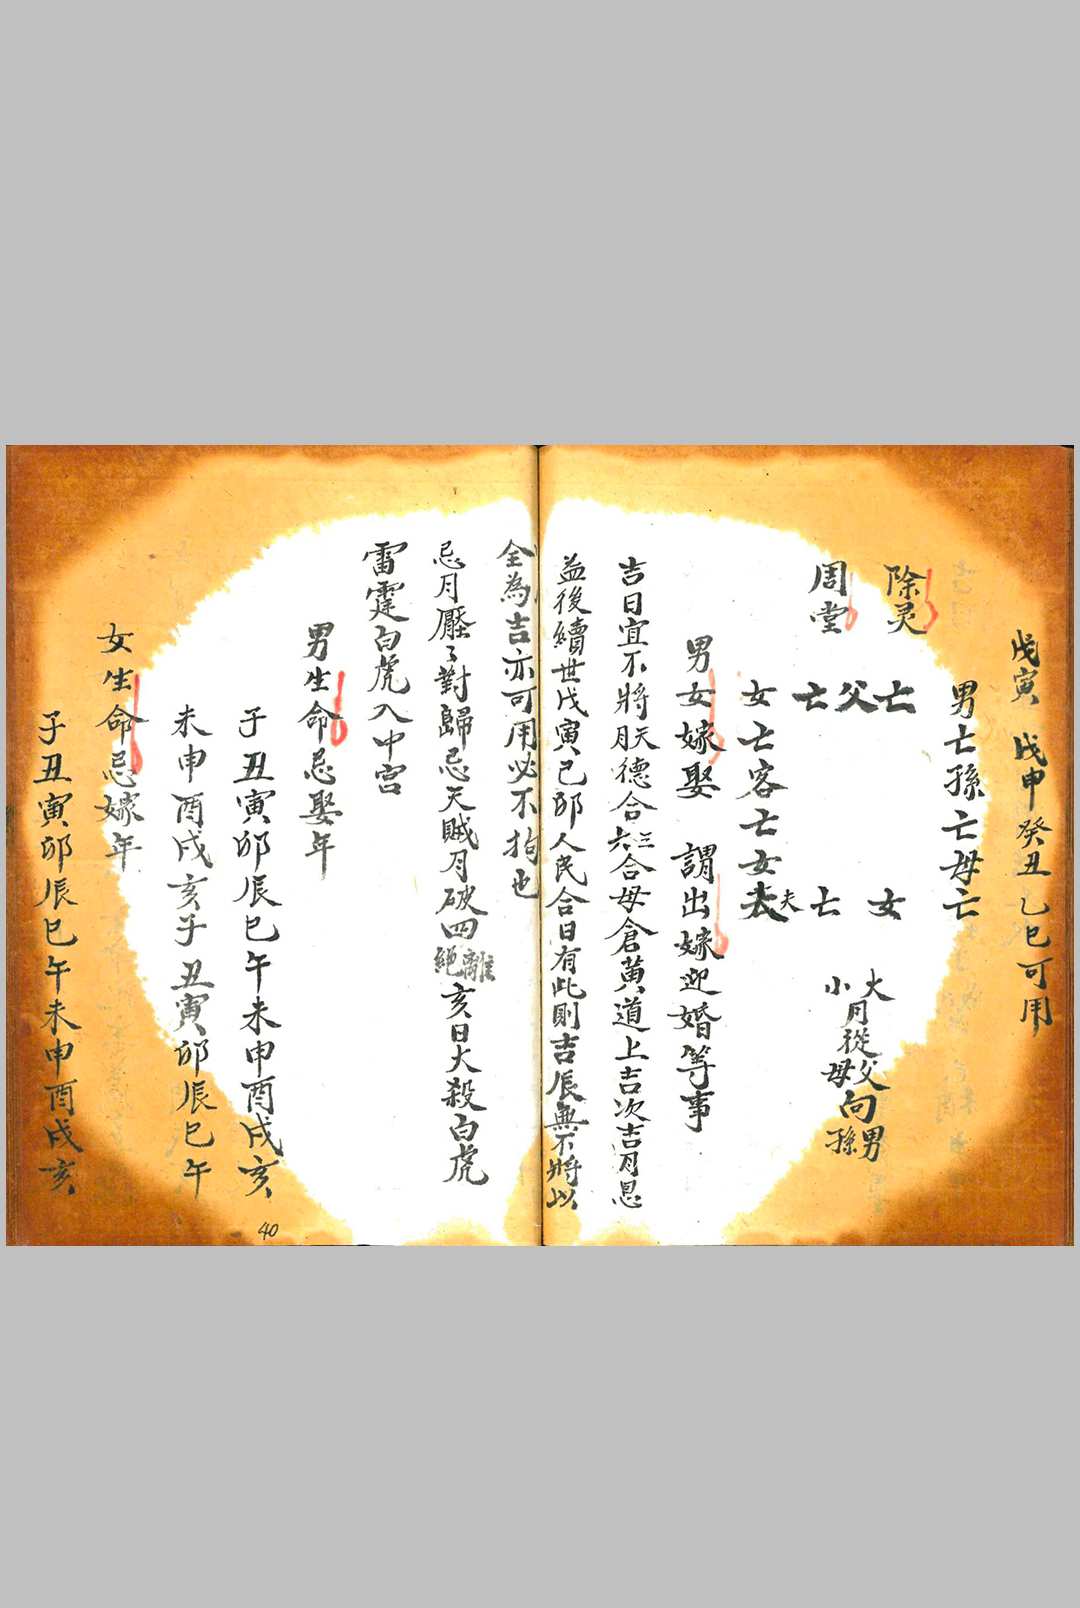 戊寅 戊申癸丑乙巳可用
男亡孫亡母亡
除灵
亡 女
父
周堂 亡 亡夫
大小月從父母向男孫
女亡客亡女夫
男女嫁娶 謂出嫁迎婚等事
吉日宜不將天月德合三六合母倉黃道上吉次吉月恩
益後續世戊寅己卯人民合日有此則吉辰無不將以
全為吉亦可用必不拘也
忌月壓々對歸忌天賊月破四離絕亥日大殺白虎
雷霆白虎入中宮
男生命忌娶年
子丑寅卯辰巳午未申酉戌亥
未申酉戌亥子丑寅卯辰巳午
女生命忌嫁年
子丑寅卯辰巳午未申酉戌亥
40